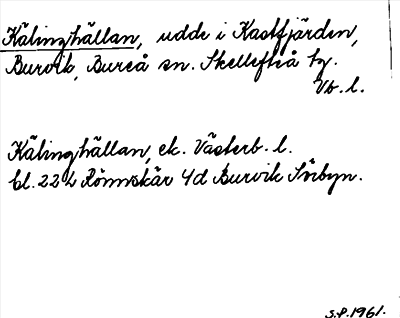 Kälinghällan, udde i Kastfjärden,
Burvik, Bureå sn. Skellefteå tg.
Vb. l.
Kälinghällan, ek. Västerb. l.
bl. 22 L Rönnskär 4d Burvik Sörbyn.
S.P. 1961.